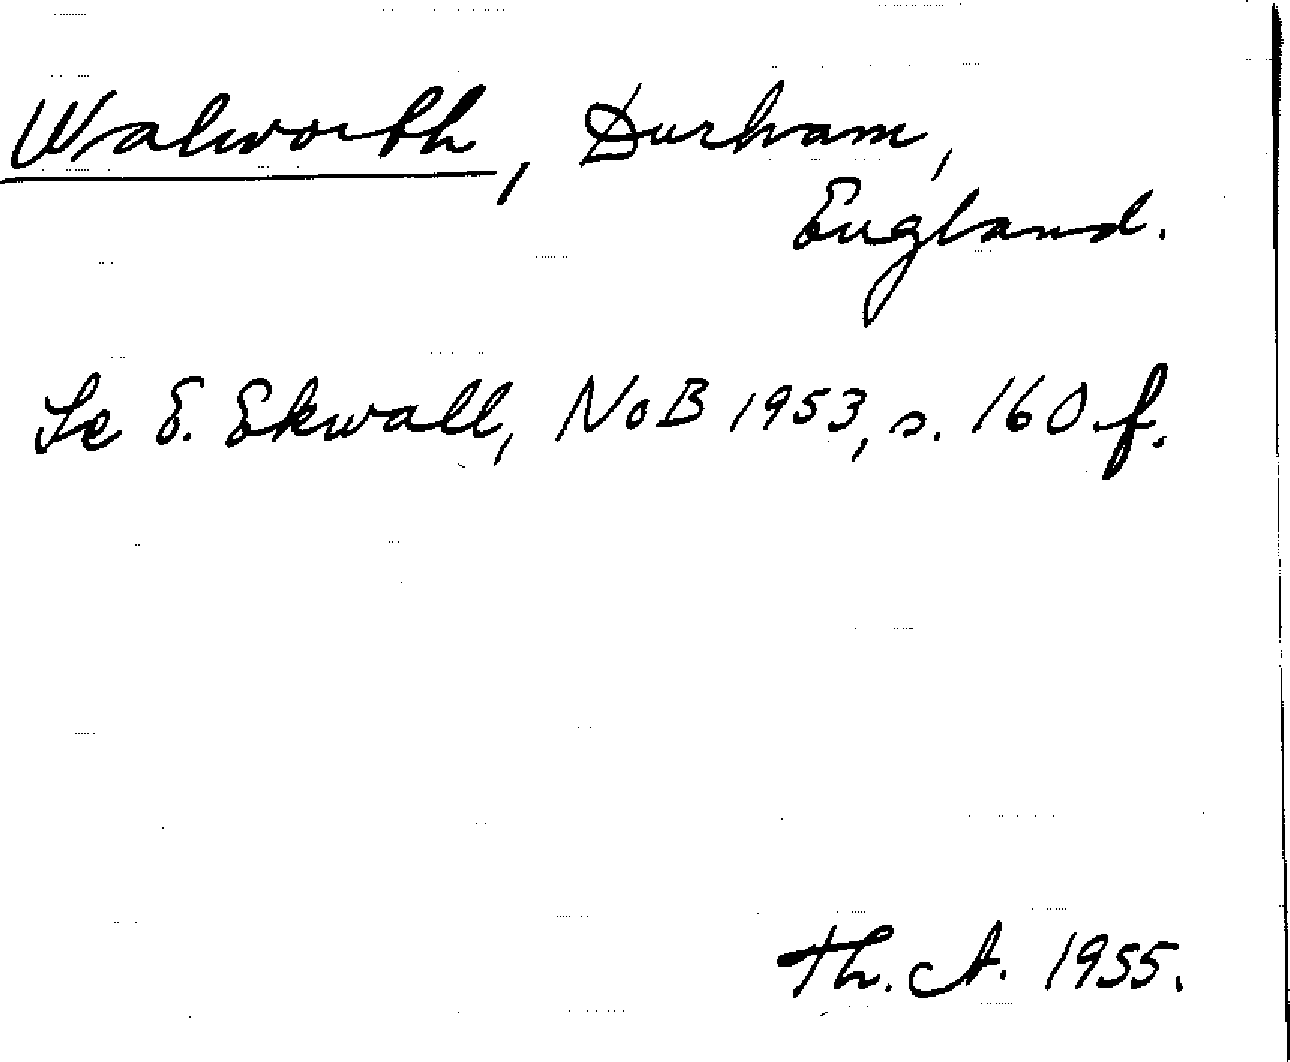 Walworth, Durham,
England.
Se E. Ekwall, NoB 1953, s. 160 f.
Th. A. 1955.